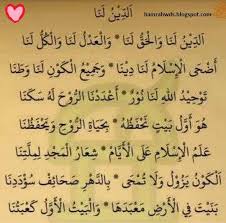 hamzahwds.blogspot.com
الدِّينُ لَنَا
اَلدِّينُ لَنَا وَالْحَقُّ لَنَا * وَالْعَدْلُ لَنَا وَالْكُلُّ لَنَا
أَضْحَى الْإِسْلَامُ لَنَا دِيْنًا * وَجَمِيْعُ الْكَوْنِ لَنَا وَطَنًا
تَوْحِيْدُ اللهِ لَنَا نُوْرٌ * أَعْدَدْنَا الرُّوْحَ لَهُ سَكَنًا
هُوَ أَوَّلُ بَيْتٍ نَحْفَظُهُ * بِحَيَاةِ الرُّوْحِ وَيَحْفَظُنَا
عَلَمُ الْإِسْلَامِ عَلَى الْأَيَّامِ * شِعَارُ الْمَجْدِ لِمِلَّتِنَا
اَلْكَوْنُ يَزُوْلُ وَلَا تُمْحَى * بِالدَّهْرِ صَحَائِفُ سُؤْدَدِنَا
بَنَيْتَ فِي الْأَرْضِ مَعْبَدَهَا * وَالْبَيْتُ الْأَوَّلُ كَعْبَتُنَا